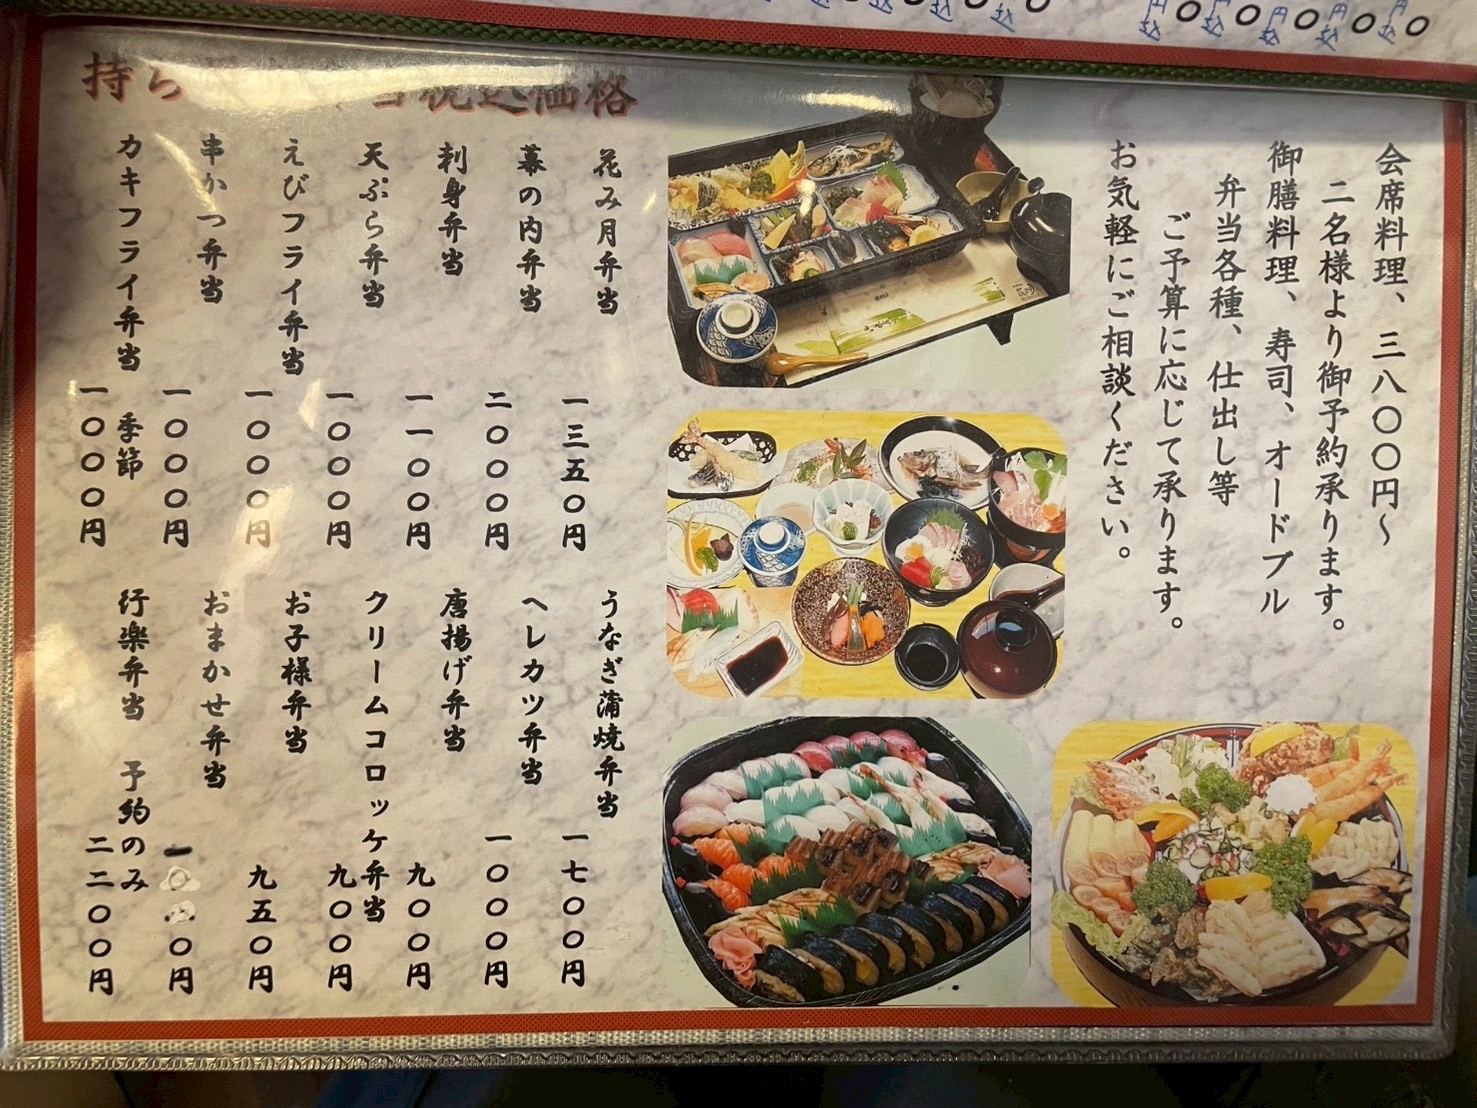 会席料理、三八〇〇円～
二名様より御予約承ります。
御膳料理、寿司、オードブル
弁当各種、仕出し等
ご予算に応じて承ります。
お気軽にご相談ください。
持ち 当税込価格
花み月弁当 一三五〇円
幕の内弁当 二〇〇〇円
刺身弁当 一一〇〇円
天ぷら弁当 一〇〇〇円
えびフライ弁当 一〇〇〇円
串かつ弁当 一〇〇〇円
カキフライ弁当 季節 一〇〇〇円
うなぎ蒲焼弁当 一七〇〇円
ヘレカツ弁当 一〇〇〇円
唐揚げ弁当 九〇〇円
クリームコロッケ弁当 九〇〇円
お子様弁当 九五〇円
おまかせ弁当
行楽弁当 予約のみ 二二〇〇円